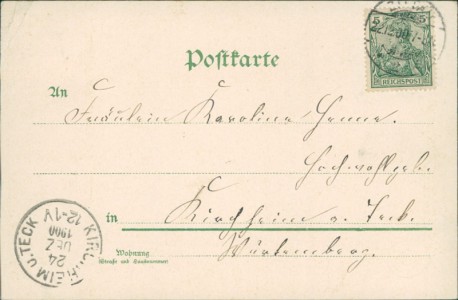 5 5
REICHSPOST
Postkarte
An
Fräulein Karoline Henne.
Hochwohlgeb.
in Kirchheim u. Teck.
Wohnung
(Straße und Hausnummer)
Würtemberg.
KIRCHHEIM U. TECK
24
DEZ
1900
12-1V